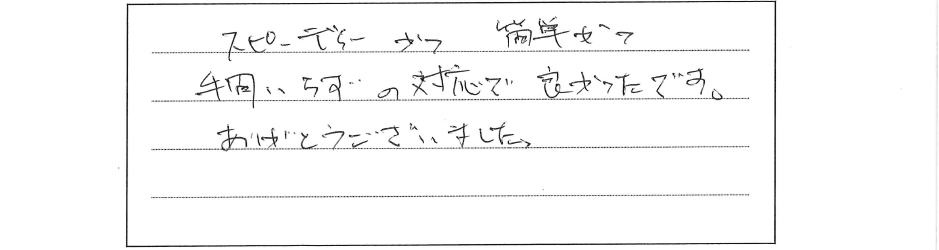 スピーディーかつ 簡単かつ
手間いらずの対応で良かったです。
ありがとうございました。